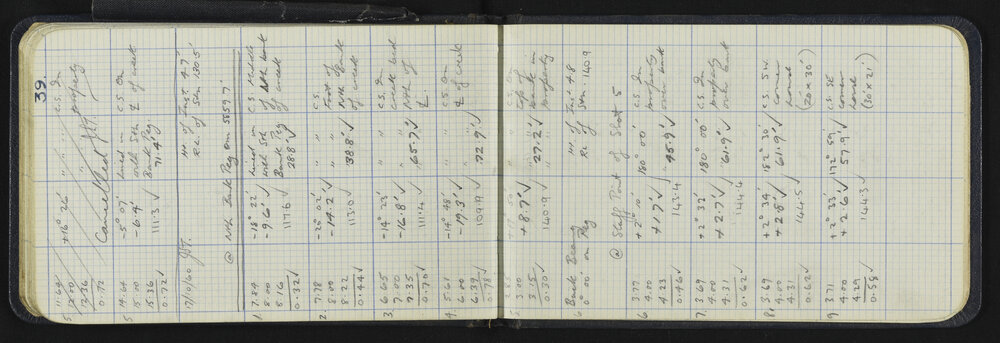 39.
11.64 +16° 26' " " c.s. In
5 12.00 " property
12.36 Cancelled JJT.
0.72
14.64 -5° 07' Lined in c.s. On
5 15.00 -6.4' with Sth ₵ of creek
15.36 111.3 √ Bank Peg
0.72 √ 71.4'
17/10/60 JJT. Ht of Inst 4.7'
R.L. of Stn 130.5'
@ Nth Bank Peg on 5559.7'
1. 7.84 -18° 22' √ Lined in c.s. Middle
8.00 -9.6' √ with Sth of Nth bank
8.16 117.6 Bank Peg of creek
0.32 √ 28.8' √
2. 7.78 -20° 02' " " c.s.
8.00 -14.2' √ " " Foot of
8.22 113.0 √ 38.8' √ Nth Bank
0.44 √ of creek
3. 6.65 -14° 23' " " c.s. In
7.00 -16.8' √ " " creek bed
7.35 111.4 √ 65.7' √ Nth of
0.70 √ ₵.
4. 5.61 -14° 48' √ " " c.s. On
6.00 -19.3' √ " " ₵ of creek
6.39 109.9 √ 72.9' √
0.78 √
5. 2.85 " " c.s.
3.00 +8.7' √ " " Top of
3.15 140.9 √ 27.2' √ bank in
0.30 √ property
6. Back Bearing Ht of Inst 4.8
0° 00' on Peg RL of Stn 140.9
@ Staff Point of Shot 5
6 3.77 +2° 10' 180° 00' c.s. In
4.00 +1.7' √ property
4.23 143.4 45.9' √ on bank
0.46 √
7. 3.69 +2° 32' 180° 00' c.s. In
4.00 +2.7' √ 61.9' √ property
4.31 144.4 on bank
0.62 √
8. 3.69 +2° 39' √ 182° 30' c.s. SW
4.00 +2.8' √ 61.9' √ corner
4.31 144.5 √ house
0.62 √ (20 x 30')
9 3.71 +2° 33' √ 172° 59' c.s. SE
4.00 +2.6' √ 57.9' √ corner
4.29 144.3 √ house
0.58 √ (30 x 21')